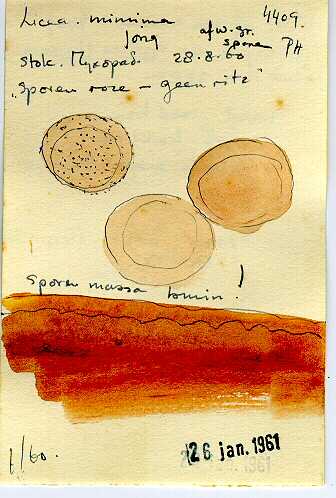 Licea. minima 4409.
jong afw. gr. sporen PH
stok. Myxopad. 28.8.60
„Sporen roze – geen rits"
Sporen massa !
1/60.
26 jan. 1961